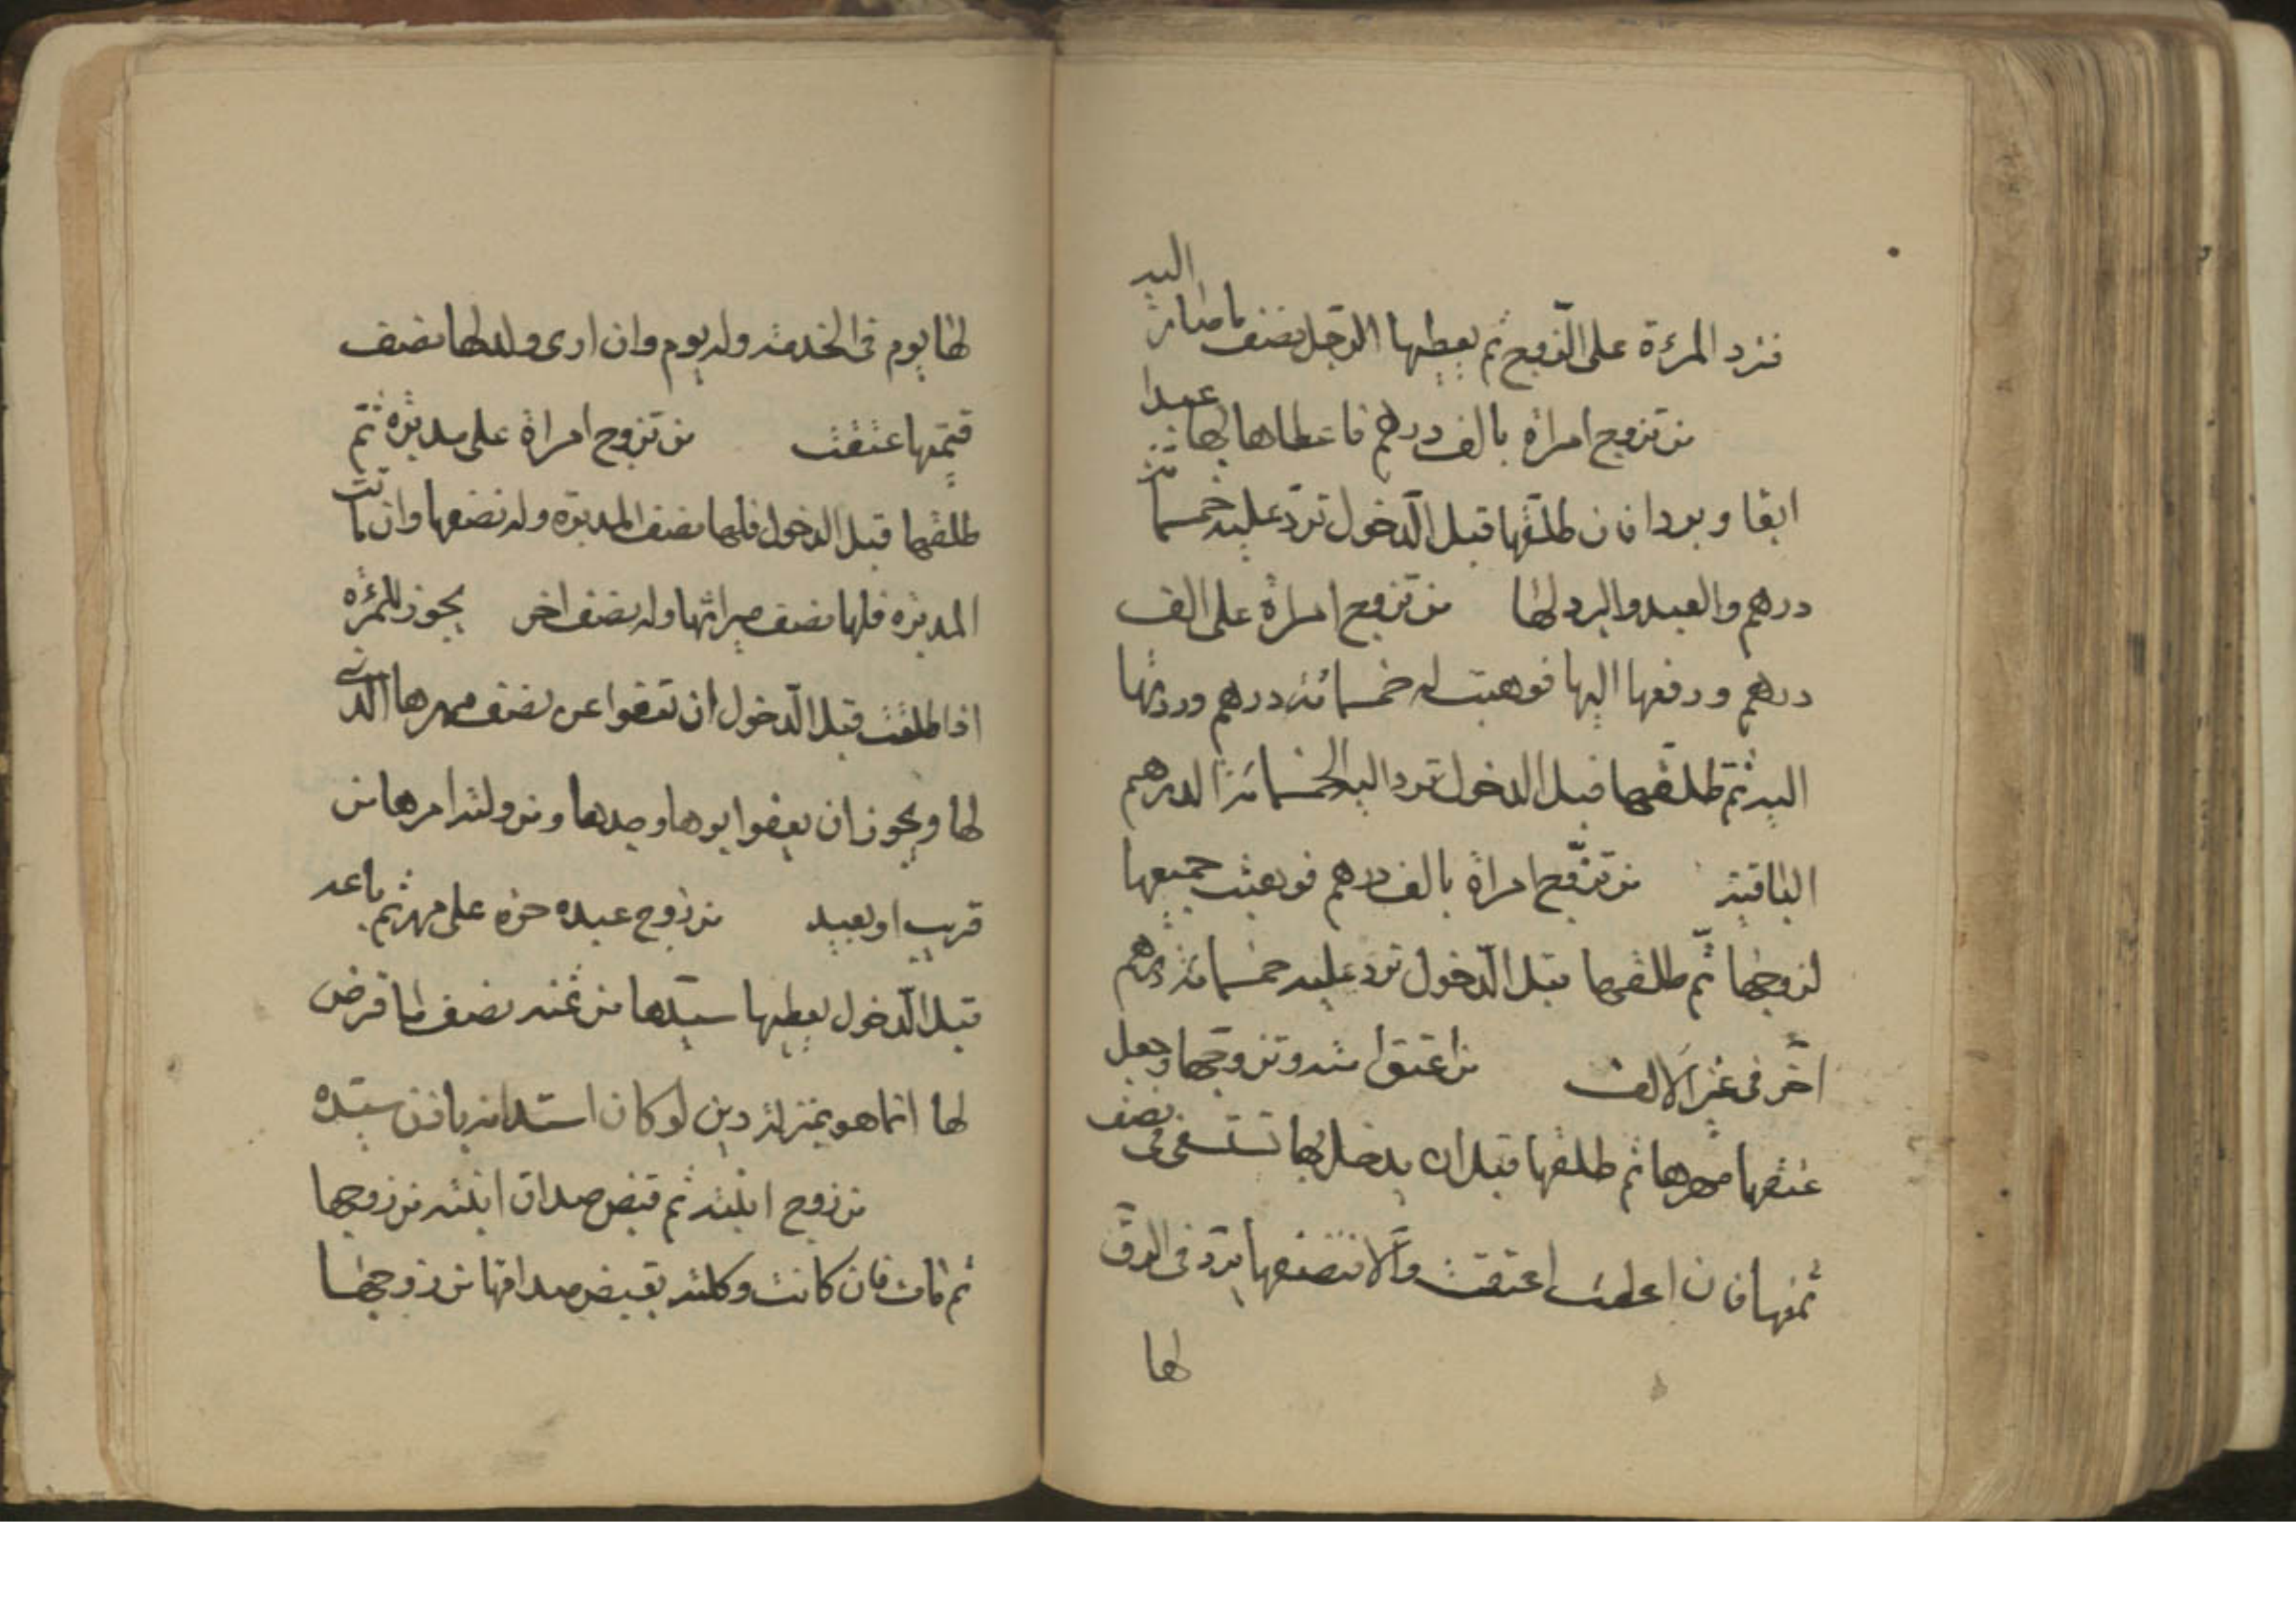 فترد المرءة على الزوج ثم يعطيها الرجل نصف ما صار اليه
من تزوج امراة بالف درهم فاعطاها بها عبدا
ابقا وبردا فان طلقها قبل الدخول ترد عليه خمسمائة
درهم والعبد والبرد لها من تزوج امراة على الف
درهم ودفعها اليها فوهبت له خمسمائة درهم وردتها
اليه ثم طلقها قبل الدخول ترد اليه الخمسمائة الدرهم
الباقية من تزوج امراة بالف درهم فوهبت جميعها
لزوجها ثم طلقها قبل الدخول ترد عليه خمسمائة درهم
اخر فى غير الالف من اعتق امته وتزوجها وجعل
عتقها مهرها ثم طلقها قبل ان يدخل بها تستسعى فى نصف
ثمنها فان اعطت اعتقت والا فنصفها يرد فى الرق
لها
لها يوم فى الخدمة وله يوم وان ادى ولدلها نصف
قيمتها عتقت من تزوج امراة على مدبرة ثم
طلقها قبل الدخول فلها نصف المدبرة وله نصفها وان ماتت
المدبرة فلها نصف ميراثها وله نصف اخر يجوز للمرءه
اذا طلقت قبل الدخول ان تعفوا عن نصف مهرها الذى
لها ويجوز ان يعفوا ابوها وجدها ومن ولته امرها من
قريب او بعيد من زوج عبده حرة على مهر ثم باعه
قبل الدخول يعطيها سيدها من ثمنه نصف ما فرض
لها انما هو بمنزلة دين لو كان استدانه باذن سيده
من زوج ابنته ثم قبض صداق ابنته من زوجها
ثم مات فان كانت وكلته بقبض صداقها من زوجها